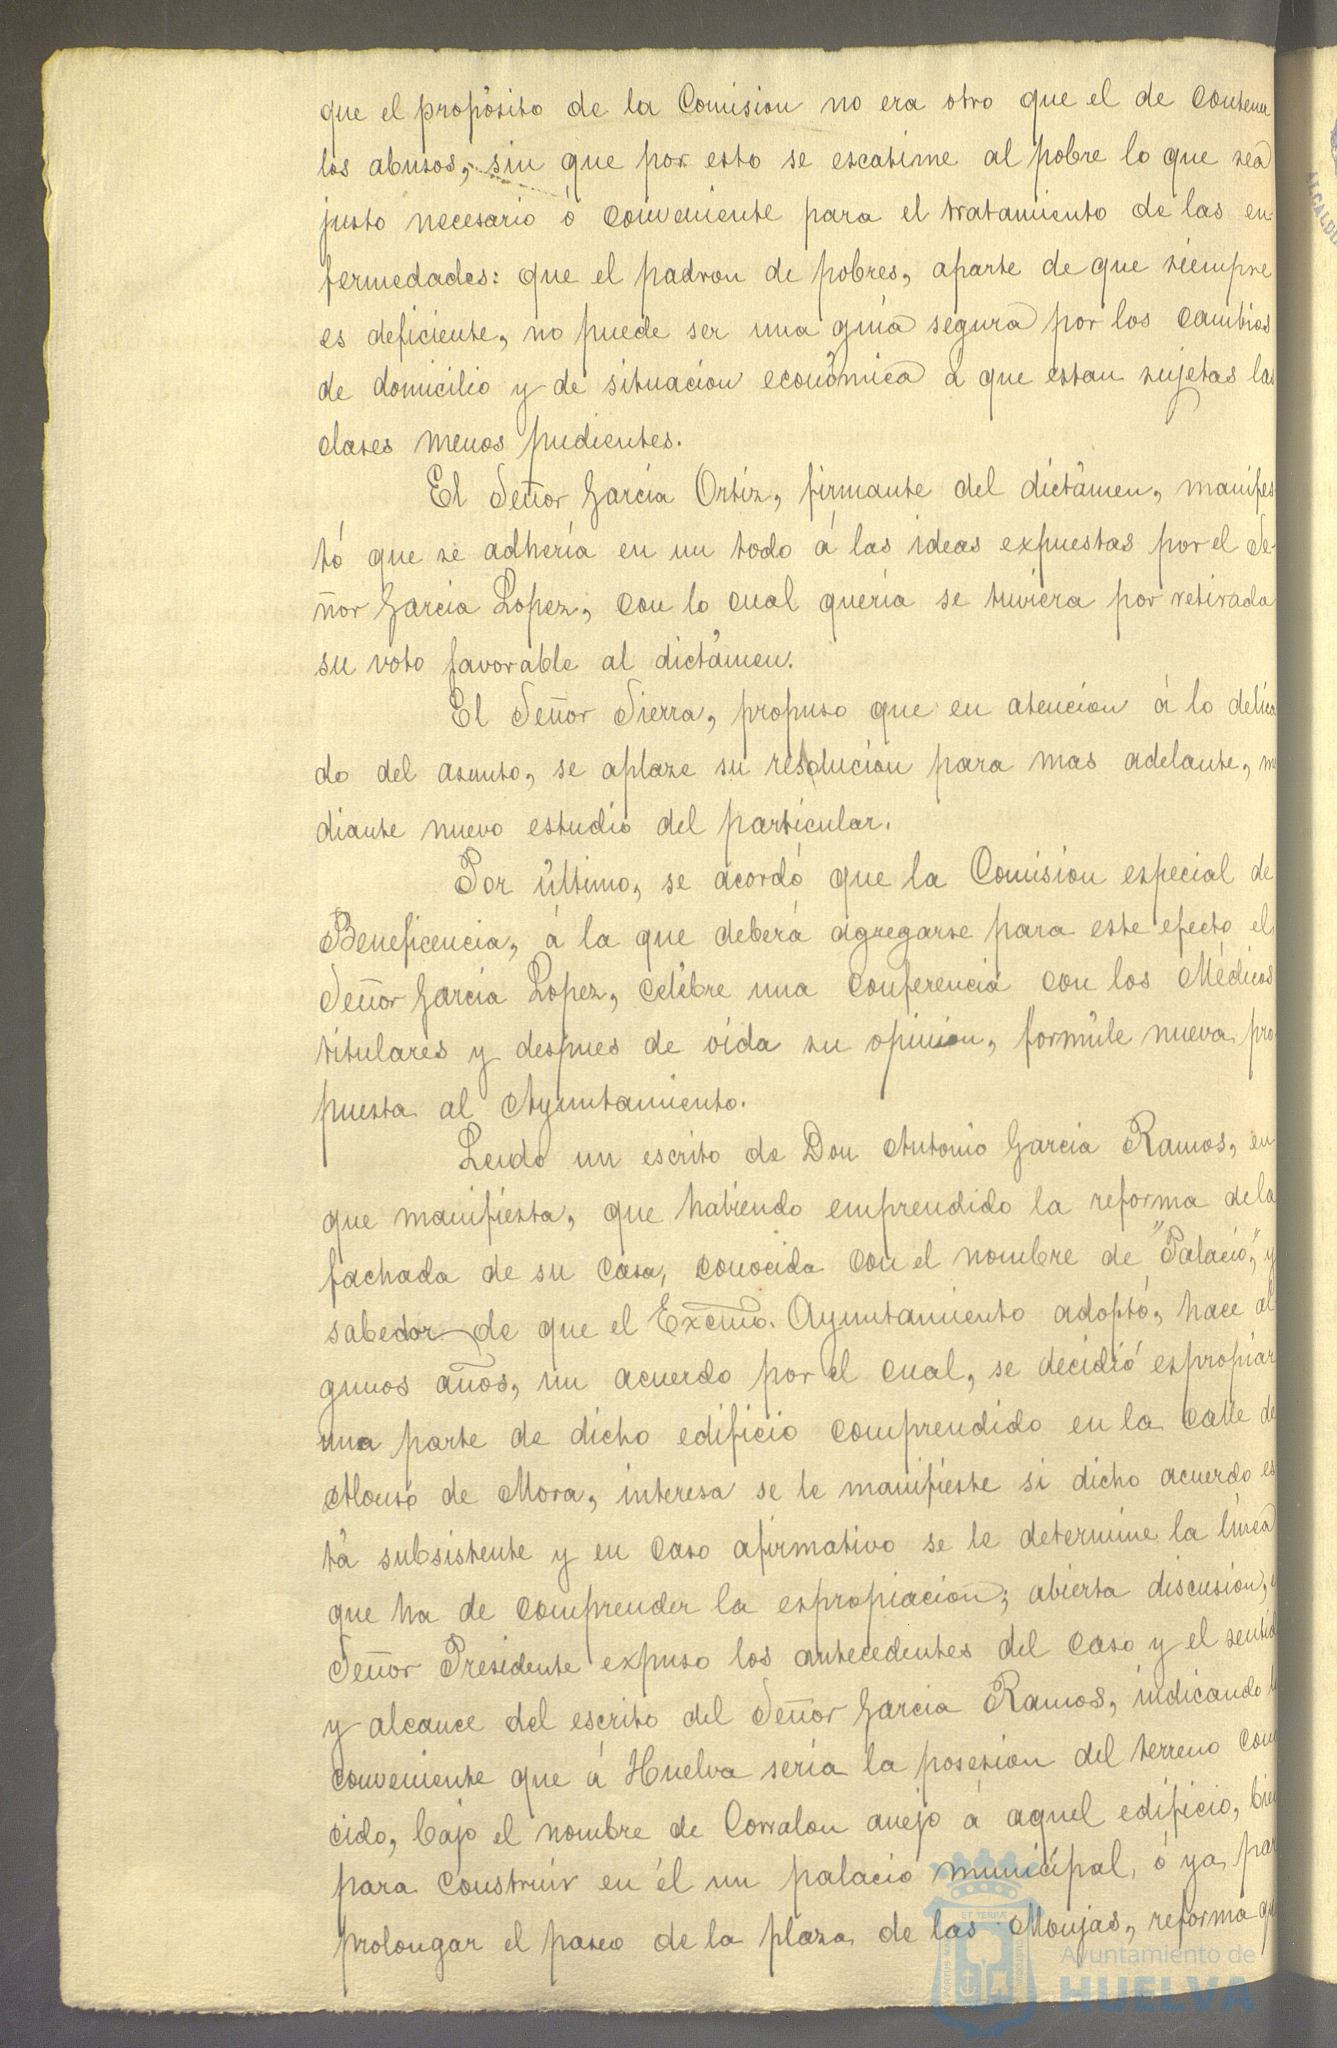 que el propósito de la Comision no era otro que el de contener
los abusos, sin que por esto se escatime al pobre lo que sea
justo necesario ó conveniente para el tratamiento de las en-
fermedades: que el padron de pobres, aparte de que siempre
es deficiente, no puede ser una guía segura por los cambios
de domicilio y de situacion económica á que estan sujetas las
clases menos pudientes.
El Señor Garcia Ortiz, firmante del dictámen, manifes
tó que se adhería en un todo á las ideas expuestas por el Se-
ñor Garcia Lopez, con lo cual quería se tuviera por retirada
su voto favorable al dictámen.
El Señor Sierra, propuso que en atencion á lo delica
do del asunto, se aplaze su resolucion para mas adelante, me
diante nuevo estudio del particular.
Por último, se acordó que la Comision especial de
Beneficencia, á la que deberá agregarse para este efecto el
Señor Garcia Lopez, celébre una conferencia con los Médicos
titulares y despues de oida su opinion, formúle nueva pro
puesta al Ayuntamiento.
Leido un escrito de Don Antonio Garcia Ramos, en
que manifiesta, que habiendo emprendido la reforma de la
fachada de su casa, conocida con el nombre de "Palacio," y
sabedor de que el Excmo. Ayuntamiento adoptó, hace al
gunos años, un acuerdo por el cual, se decidió expropiar
una parte de dicho edificio comprendido en la calle de
Alonso de Mora, interesa se le manifieste si dicho acuerdo es
tá subsistente y en caso afirmativo se le determine la línea
que ha de comprender la expropiacion; abierta discusion,
Señor Presidente expuso los antecedentes del caso y el sentido
y alcance del escrito del Señor Garcia Ramos, indicando lo
conveniente que á Huelva sería la posesion del terreno cono
cido, bajo el nombre de Corralon anejo á aquel edificio, bien
para construir en él un palacio municipal, ó ya para
prolongar el paseo de la plaza de las Monjas, reforma que
Ayuntamiento de
HUELVA